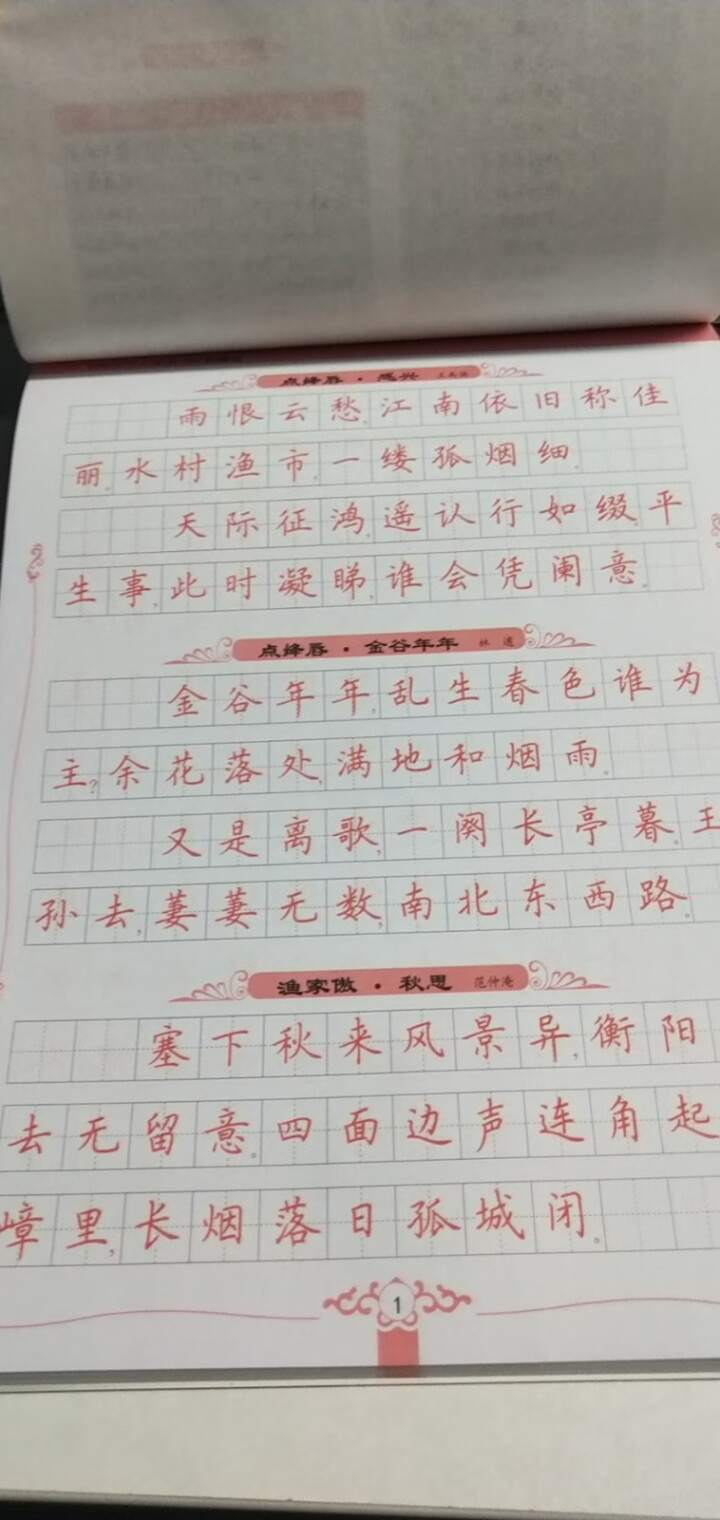 点绛唇·感兴 王禹偁
雨恨云愁,江南依旧称佳
丽。水村渔市,一缕孤烟细。
天际征鸿,遥认行如缀。平
生事,此时凝睇,谁会凭阑意。
点绛唇·金谷年年 林逋
金谷年年,乱生春色谁为
主?余花落处,满地和烟雨。
又是离歌,一阕长亭暮。王
孙去,萋萋无数,南北东西路。
渔家傲·秋思 范仲淹
塞下秋来风景异,衡阳
去无留意。四面边声连角起
嶂里,长烟落日孤城闭。
1